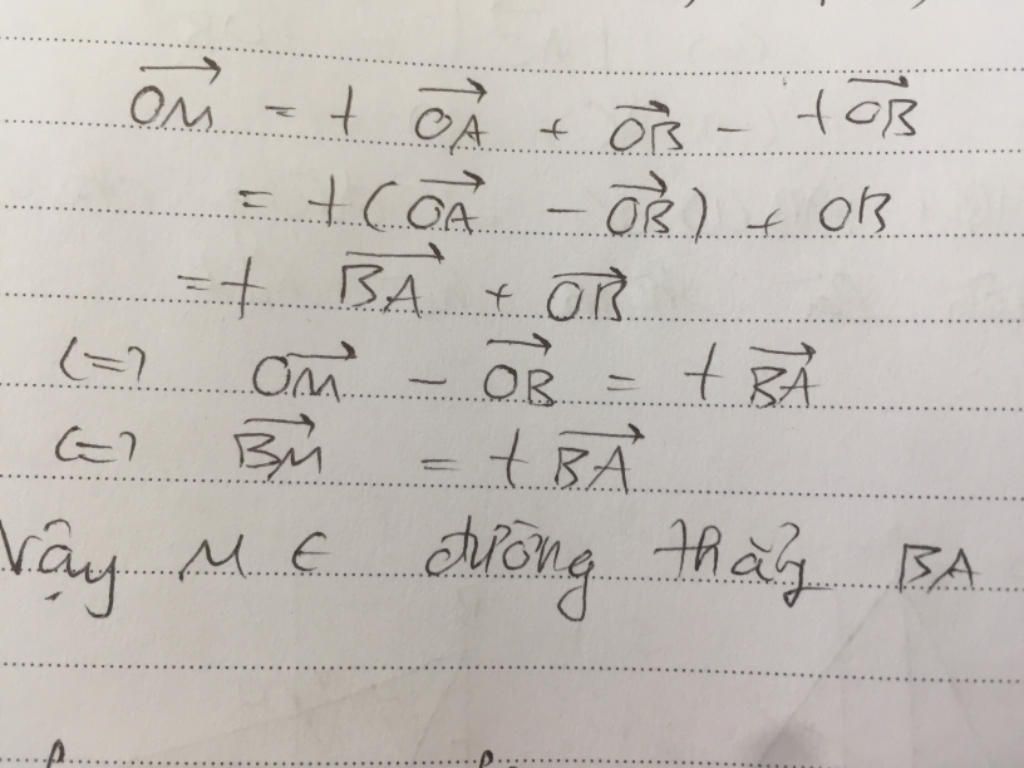 OM⃗ = t OA⃗ + OB⃗ - tOB⃗
= t(OA⃗ - OB⃗) + OB
= t BA⃗ + OB⃗
(=) OM⃗ - OB⃗ = t BA⃗
(=) BM⃗ = t BA⃗
Vậy M ∈ đường thẳng BA